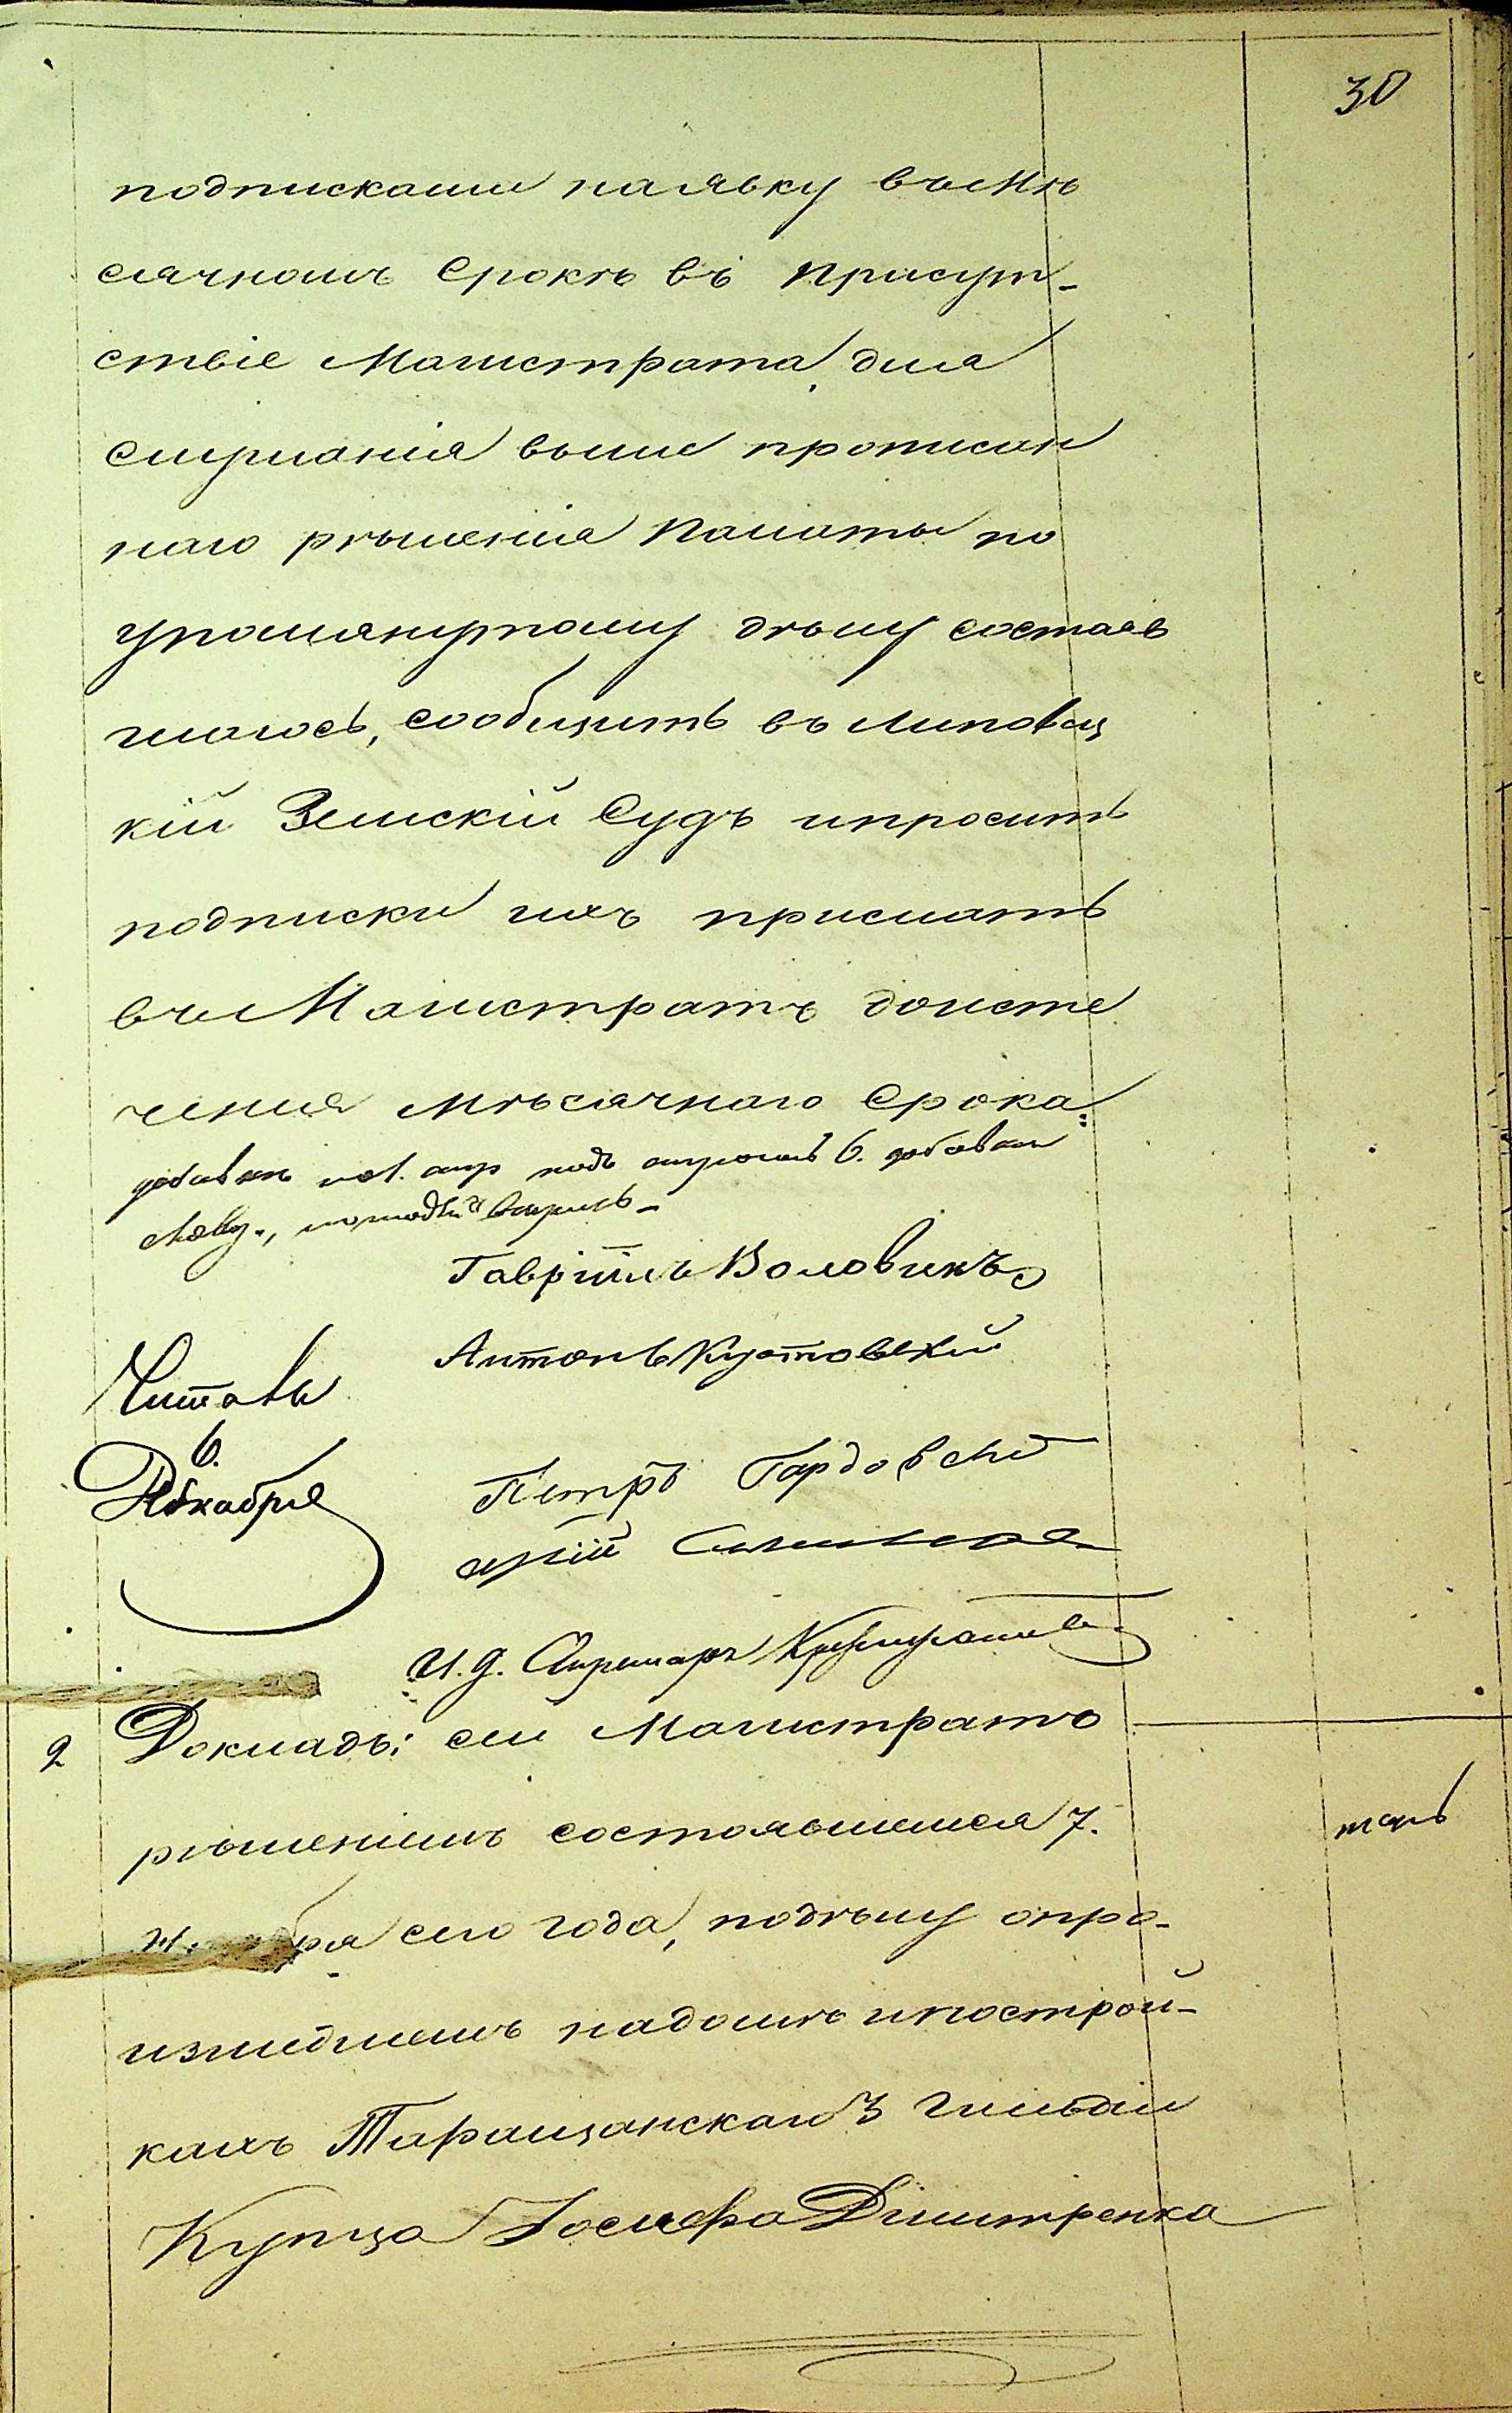 30
подписками наявку въмѣ
сячномъ Срокѣ въ присут-
ствіе Магистрата, для
слушанія выше прописан
наго рѣшенія Палаты по
упомянутому дѣлу состояв
шагось, сообщить въ Липовец
кій Земскій Судъ ипросить
подписки ихъ прислать
въ Магистратъ доисте
ченія мѣсячнаго Срока:
Гавріилъ Воловикъ
Антонъ Кутовскій
Читалъ
6.
Декабря
Петръ Гардовскій
И. д. Секретаря
2 Докладъ: сей Магистратъ
рѣшеніемъ состоявшимся 7.
сего года, подѣлу опро-
изшедшемъ надомѣ ипострой-
кахъ Таращанскаго 3 гильдіи
Купца Іосифа Дмитренка